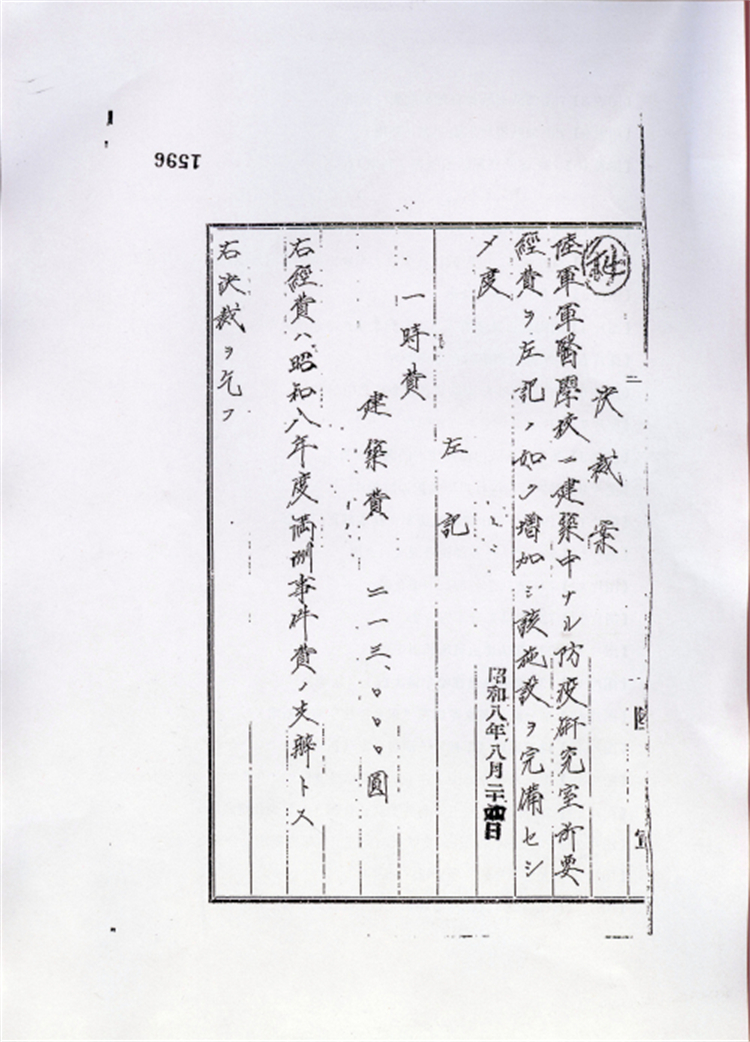 決裁案
陸軍軍醫學校ニ建築中ナル防疫研究室所要
經費ヲ左記ノ如ク増加シ該施設ヲ完備セシ
メ度
昭和八年八月二十四日
左記
一時費
建築費 二一三、〇〇〇圓
右經費ハ昭和八年度満洲事件費ノ支辨トス
右決裁ヲ乞フ
陸
1596